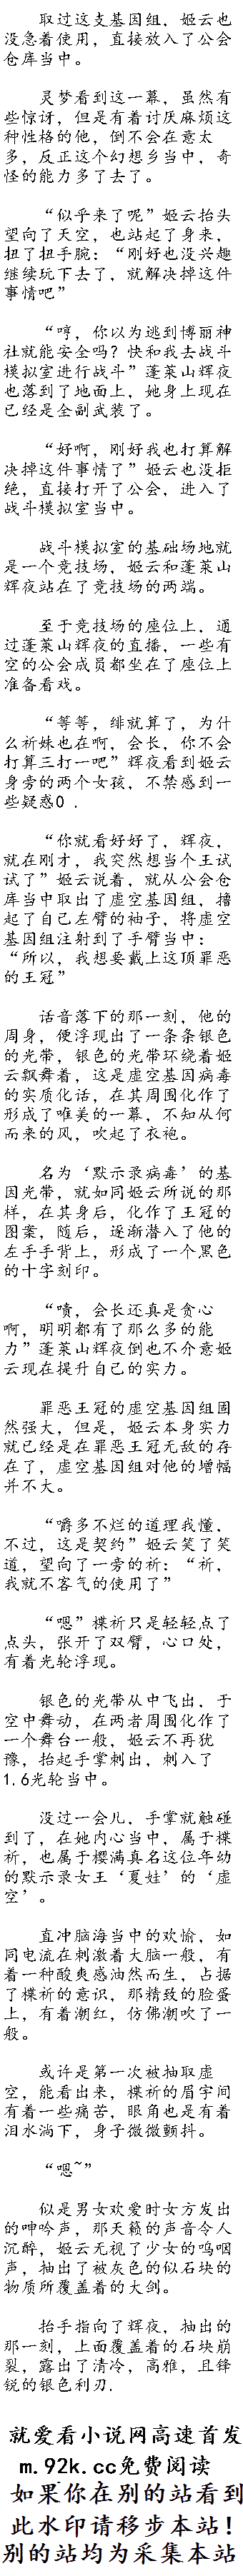 取过这支基因组，姬云也
没急着使用，直接放入了公会
仓库当中。
灵梦看到这一幕，虽然有
些惊讶，但是有着讨厌麻烦这
种性格的他，倒不会在意太
多，反正这个幻想乡当中，奇
怪的能力多了去了。
“似乎来了呢”姬云抬头
望向了天空，也站起了身来，
扭了扭手腕：“刚好也没兴趣
继续玩下去了，就解决掉这件
事情吧”
“哼，你以为逃到博丽神
社就能安全吗？快和我去战斗
模拟室进行战斗”蓬莱山辉夜
也落到了地面上，她身上现在
已经是全副武装了。
“好啊，刚好我也打算解
决掉这件事情了”姬云也没拒
绝，直接打开了公会，进入了
战斗模拟室当中。
战斗模拟室的基础场地就
是一个竞技场，姬云和蓬莱山
辉夜站在了竞技场的两端。
至于竞技场的座位上，通
过蓬莱山辉夜的直播，一些有
空的公会成员都坐在了座位上
准备看戏。
“等等，绯就算了，为什
么祈妹也在啊，会长，你不会
打算三打一吧”辉夜看到姬云
身旁的两个女孩，不禁感到一
些疑惑0 .
“你就看好好了，辉夜，
就在刚才，我突然想当个王试
试了”姬云说着，就从公会仓
库当中取出了虚空基因组，撸
起了自己左臂的袖子，将虚空
基因组注射到了手臂当中：
“所以，我想要戴上这顶罪恶
的王冠”
话音落下的那一刻，他的
周身，便浮现出了一条条银色
的光带，银色的光带环绕着姬
云飘舞着，这是虚空基因病毒
的实质化话，在其周围化作了
形成了唯美的一幕，不知从何
而来的风，吹起了衣袍。
名为‘默示录病毒’的基
因光带，就如同姬云所说的那
样，在其身后，化作了王冠的
图案，随后，逐渐潜入了他的
左手手背上，形成了一个黑色
的十字刻印。
“啧，会长还真是贪心
啊，明明都有了那么多的能
力”蓬莱山辉夜倒也不介意姬
云现在提升自己的实力。
罪恶王冠的虚空基因组固
然强大，但是，姬云本身实力
就已经是在罪恶王冠无敌的存
在了，虚空基因组对他的增幅
并不大。
“嚼多不烂的道理我懂，
不过，这是契约”姬云笑了笑
道，望向了一旁的祈：“祈，
我就不客气的使用了”
“嗯”楪祈只是轻轻点了
点头，张开了双臂，心口处，
有着光轮浮现。
银色的光带从中飞出，于
空中舞动，在两者周围化作了
一个舞台一般，姬云不再犹
豫，抬起手掌刺出，刺入了
1.6光轮当中。
没过一会儿，手掌就触碰
到了，在她内心当中，属于楪
祈，也属于樱满真名这位年幼
的默示录女王‘夏娃’的‘虚
空’。
直冲脑海当中的欢愉，如
同电流在刺激着大脑一般，有
着一种酸爽感油然而生，占据
了楪祈的意识，那精致的脸蛋
上，有着潮红，仿佛潮吹了一
般。
或许是第一次被抽取虚
空，能看出来，楪祈的眉宇间
有着一些痛苦，眼角也是有着
泪水淌下，身子微微颤抖。
“嗯~”
似是男女欢爱时女方发出
的呻吟声，那天籁的声音令人
沉醉，姬云无视了少女的呜咽
声，抽出了被灰色的似石块的
物质所覆盖着的大剑。
抬手指向了辉夜，抽出的
那一刻，上面覆盖着的石块崩
裂，露出了清冷，高雅，且锋
锐的银色利刃.
就爱看小说网高速首发
m.92k.cc免费阅读
如果你在别的站看到
此水印请移步本站！
别的站均为采集本站